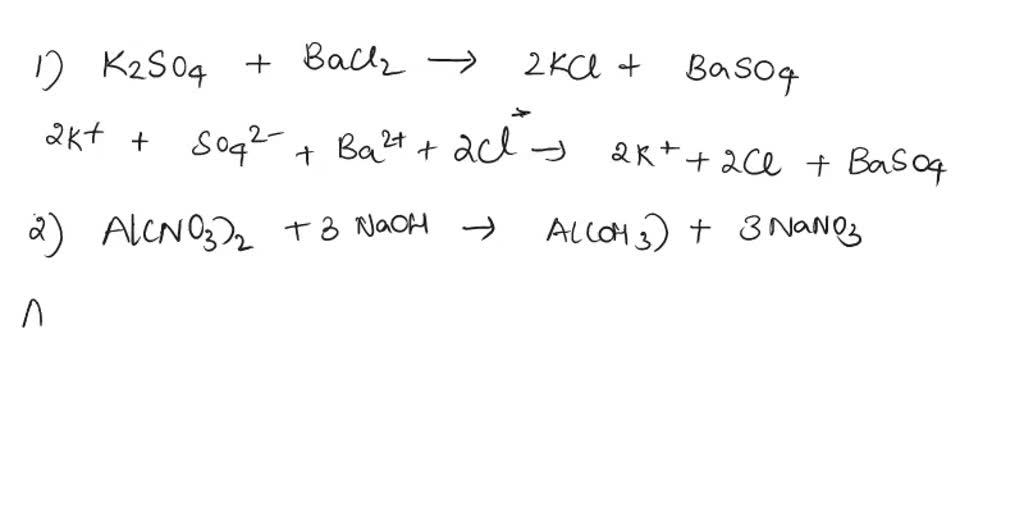 1) K2SO4 + BaCl2 → 2KCl + BaSO4
2K+ + SO4 2- + Ba2+ + 2Cl- → 2K+ + 2Cl + BaSO4
2) Al(NO3)2 + 3 NaOH → Al(OH3) + 3NaNO3